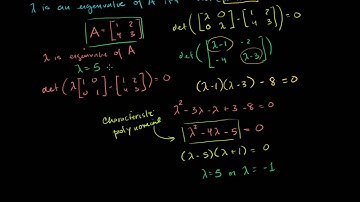 λ is an eigenvalue of A iff
A = [1 2; 4 3]
λ is eigenvalue of A
λ = 5
det(λ[1 0; 0 1] - [1 2; 4 3]) = 0
det([λ 0; 0 λ] - [1 2; 4 3]) = 0
det([λ-1 -2; -4 λ-3])
(λ-1)(λ-3) - 8 = 0
λ² - 3λ - λ + 3 - 8 = 0
Characteristic
polynomial
λ² - 4λ - 5 = 0
(λ-5)(λ+1) = 0
λ=5 or λ = -1